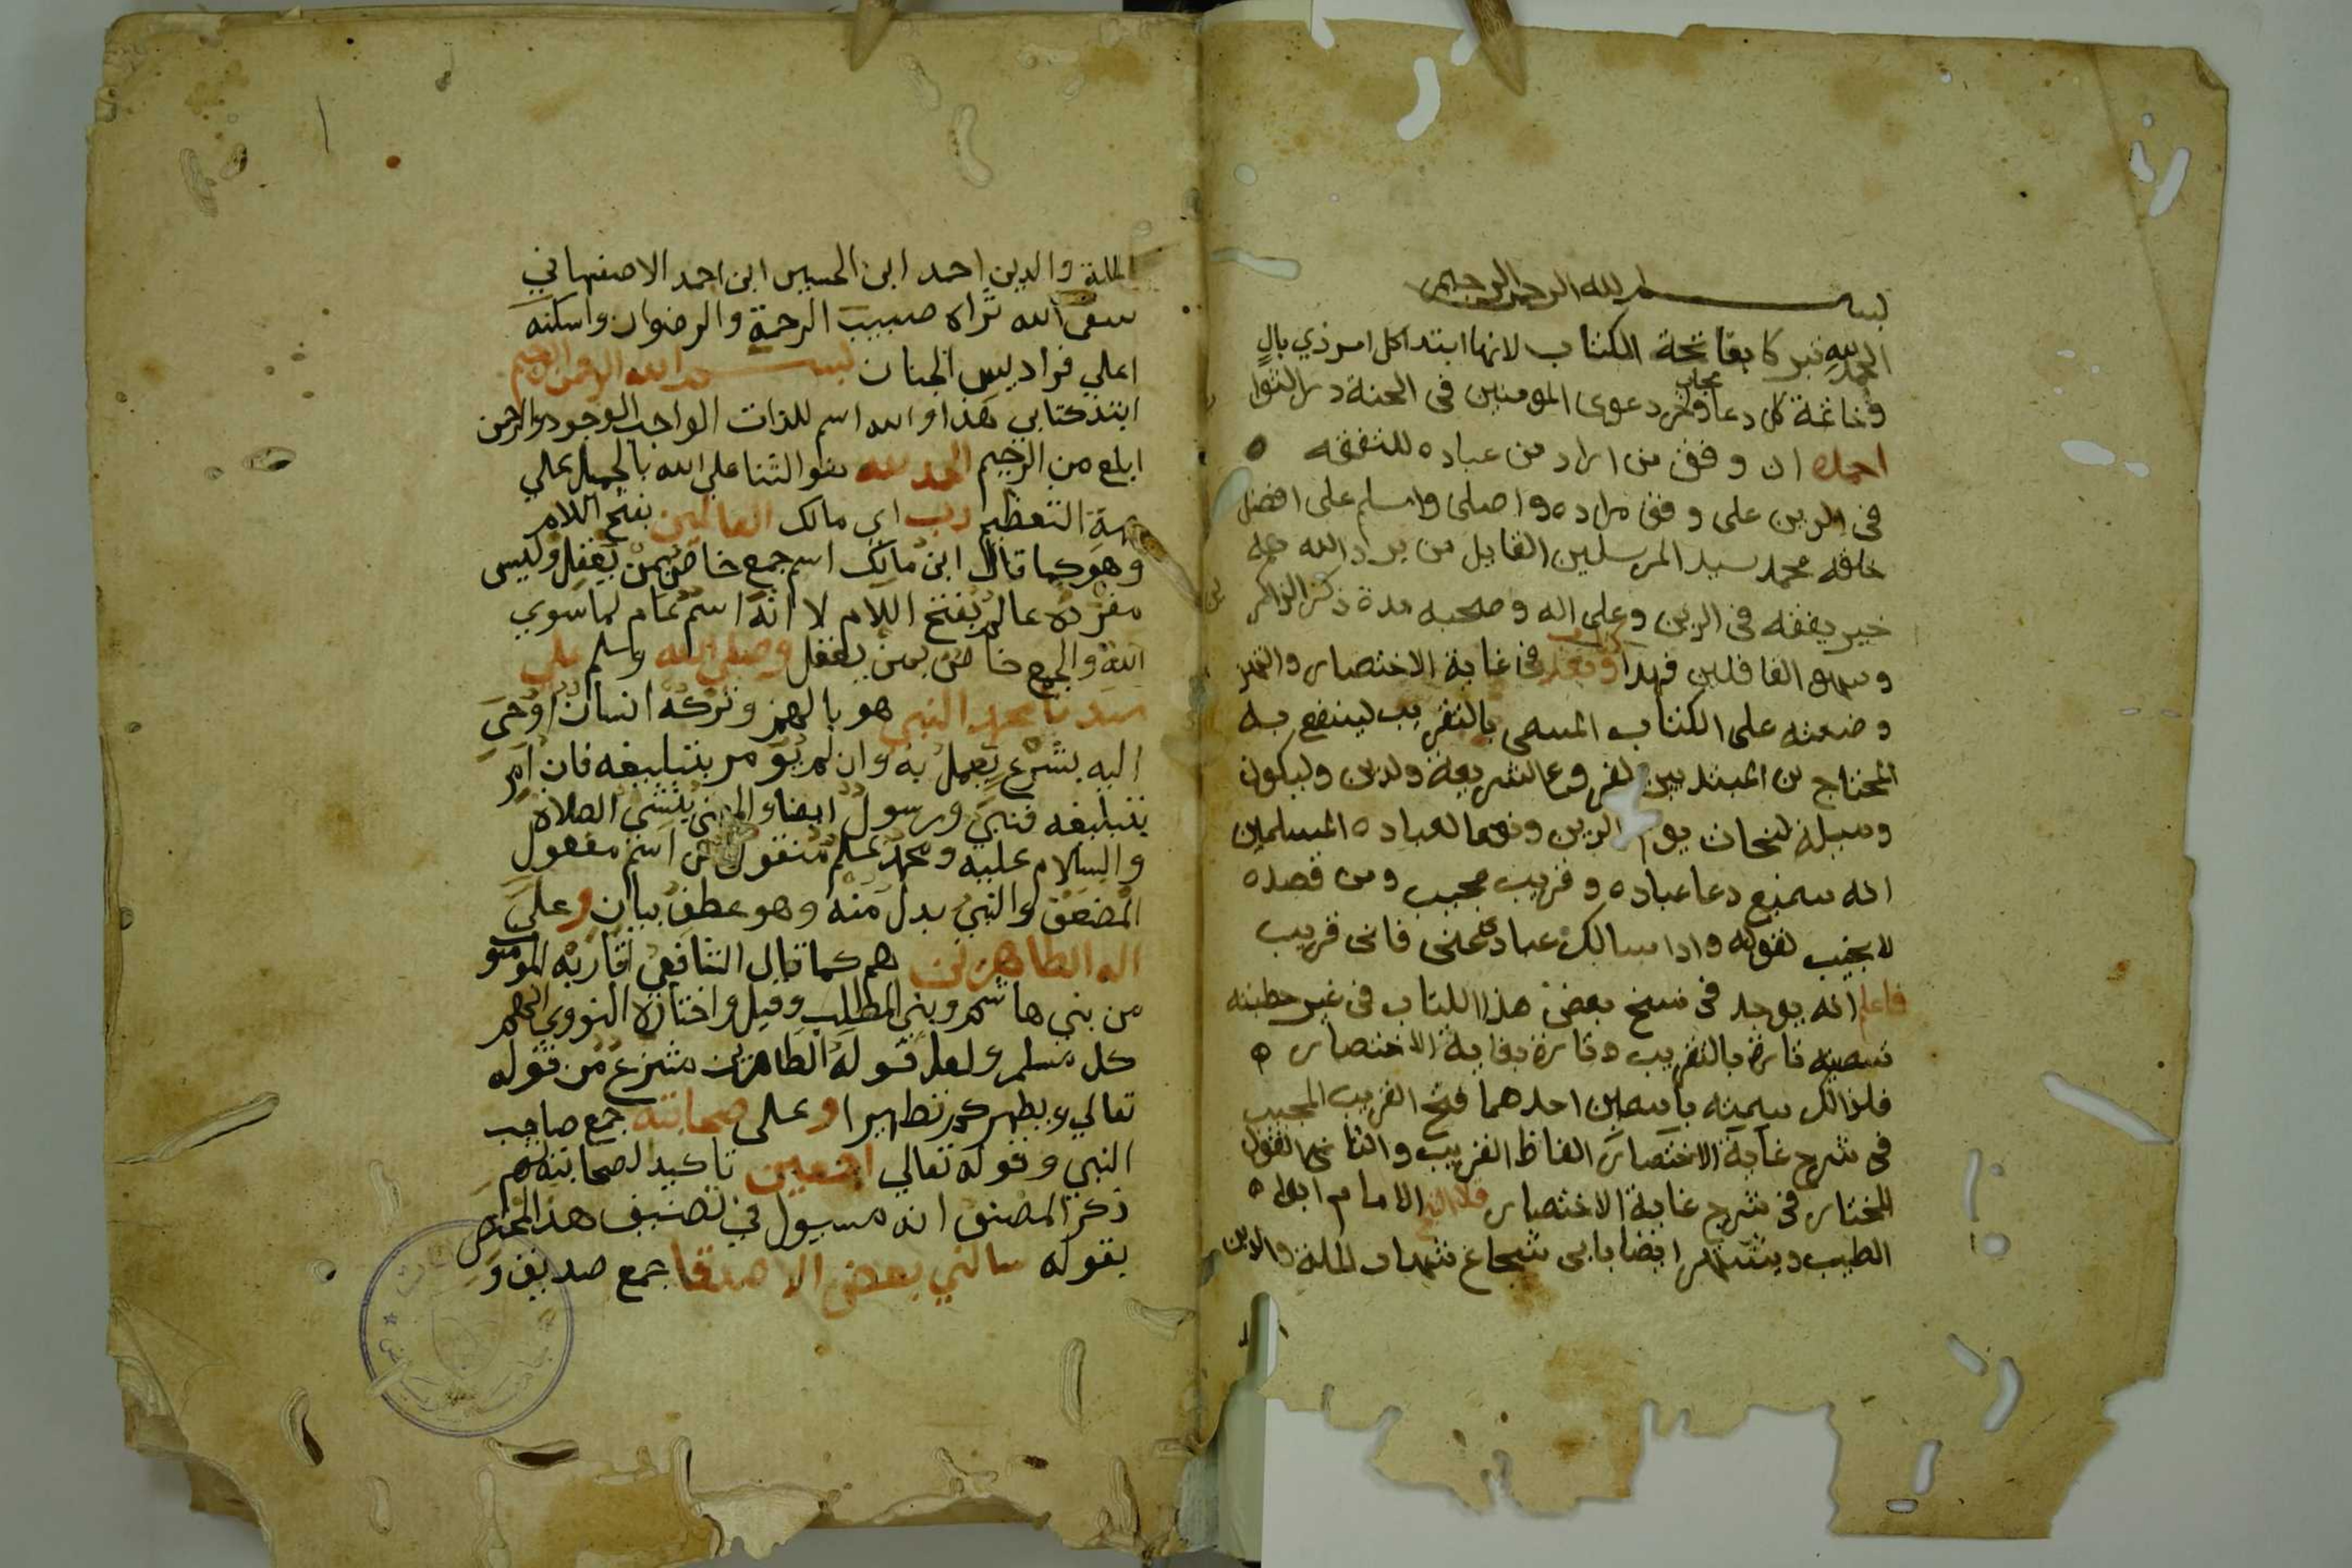 بسم الله الرحمن الرحيم
الحمد لله تبركا بفاتحة الكتاب لانها ابتدا كل امر ذي بال
وخاتمة كل دعا مجاب واخر دعوى المومنين في الجنة دار الثوا
احمده ان وفق من اراد من عباده للتفقه
في الدين على وفق مراده واصلى واسلم على افضل
خلقه محمد سيد المرسلين القايل من يرد الله به
خير يفقهه في الدين وعلى اله وصحبه مدة ذكر الذاكر ين
وسهو الغافلين فهذا كتاب في غاية الاختصار والتهذ
وضعته على الكتاب المسمى بالتقريب لينتفع به
المحتاج من المبتديين لفروع الشريعة والدين وليكون
وسيلة لنجاتي يوم الدين ونفعا لعباده المسلمين
انه سميع دعا عباده وقريب مجيب ومن قصده
لا يخيب لقوله واذا سالك عبادي عنى فانى قريب
فاعلم انه يوجد في نسخ بعض هذا الكتاب في غير خطبته
تسميته تارة بالتقريب وتارة بغاية الاختصار
فلذالك سميته باسمين احدهما فتح القريب المجيب
في شرح غاية الاختصار الفاظ التقريب والثاني القول
المختار في شرح غاية الاختصار قال الشيخ الامام ابو
الطيب ويشتهر ايضا بابى شجاع شهاب الملة والدين
الملة والدين احمد ابن الحسين ابن احمد الاصفهاني
سقى الله ثراه صبيب الرحمة والرضوان واسكنه
اعلي فراديس الجنان بسم الله الرحمن الرحيم
ابتد كتابي هذا والله اسم للذات الواجب الوجود والرحمن
ابلغ من الرحيم الحمد لله هو الثنا على الله بالجميل على
جهة التعظيم رب اي مالك العالمين بفتح اللام
وهو كما قال ابن مالك اسم جمع خاص بمن يعقل وليس
مفرده عالم بفتح اللام لا انه اسم عام لما سوي
الله والجمع خاص بمن يعقل وصلى الله وسلم علي
سيدنا محمد النبي هو بالهمز وتركه انسان اوحي
اليه بشرع يعمل به وان لم يومر بتبليغه فان امر
بتبليغه فنبي ورسول ايضا والمعنى ينشي الصلاة
والسلام عليه ومحمد علم منقول من اسم مفعول
المضعف والنبي بدل منه وهو عطف بيان وعلى
اله الطاهرين هم كما قال الشافعي اقاربه المومنو
من بني هاشم وبني المطلب وقيل واختاره النووي انهم
كل مسلم ولعل قوله الطاهرين منتزع من قوله
تعالي ويطهركم تطهيرا وعلى صحابته جمع صاحب
النبي وقوله تعالي اجمعين تاكيد لصحابته ثم
ذكر المصنف انه مسيول في تصنيف هذا المختصر
بقوله سالني بعض الاصدقا جمع صديق و